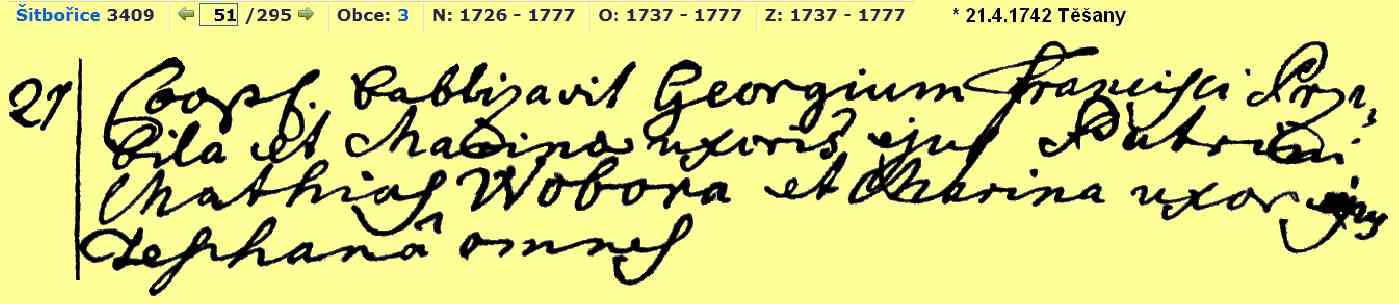 Šitbořice 3409 51 /295 Obce: 3 N: 1726 - 1777 O: 1737 - 1777 Z: 1737 - 1777 * 21.4.1742 Těšany
21 Coops. babtizavit Georgium Francisci Przi,
bila et Marina uxoris ejus Patrini
Mathias Wobora et Marina uxor ejus
Teshana omnes